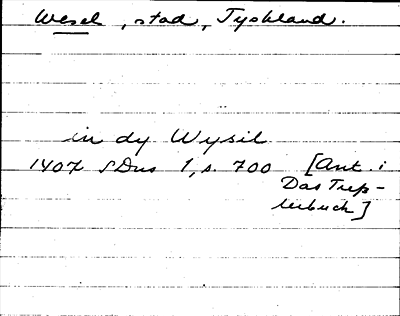 Wesel, stad, Tyskland.
in dy Wysil
1407 SDns 1, s. 700 [Ant. i
Das Trep-
lerbuch]